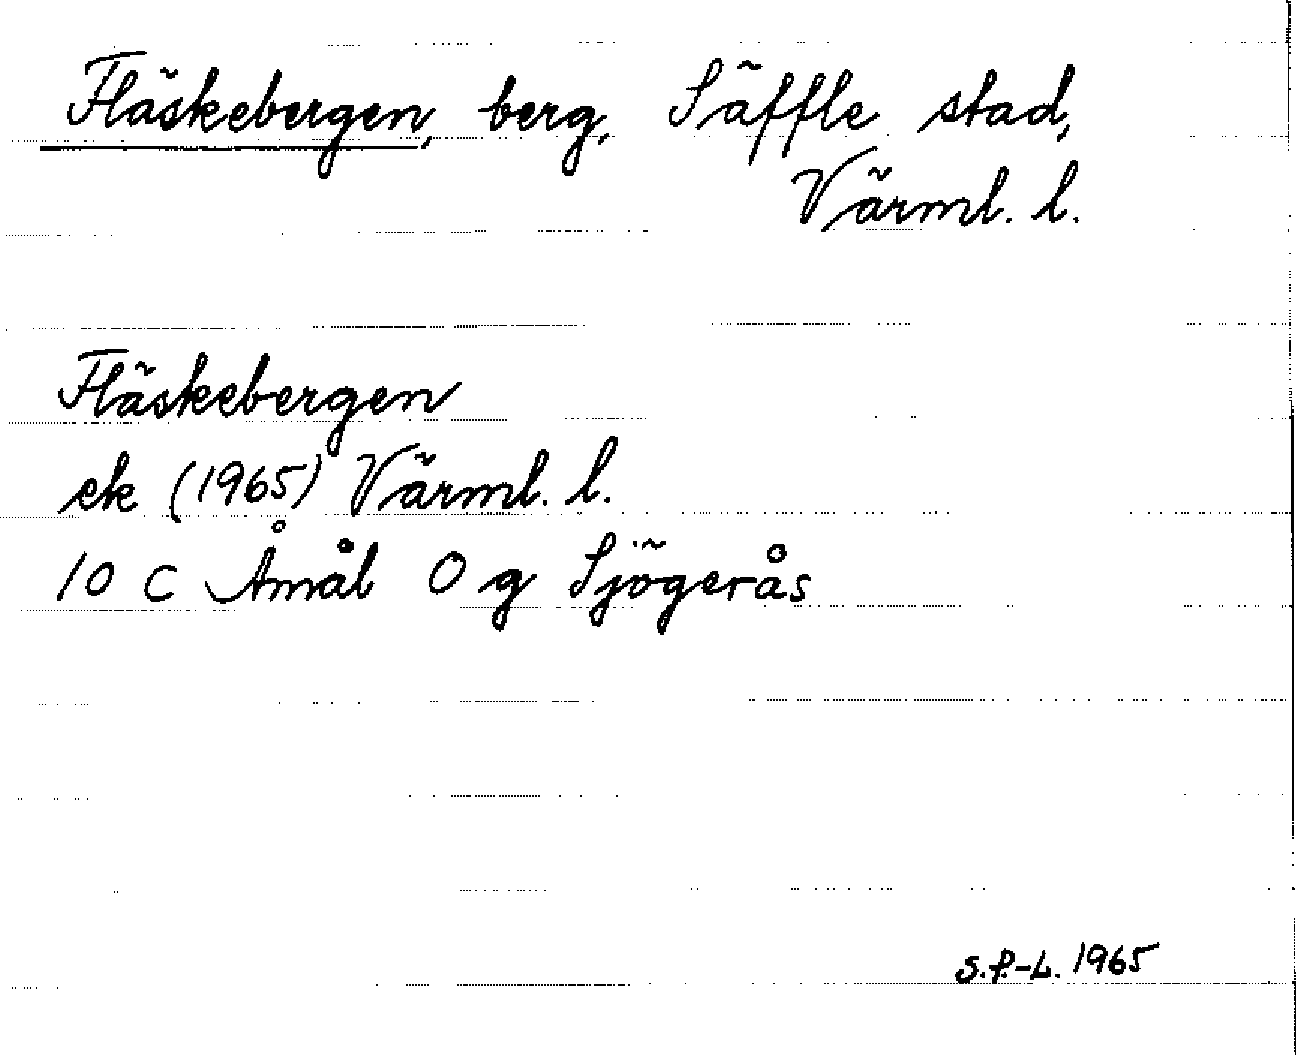 Fläskebergen, berg, Säffle stad,
Värml. l.
Fläskebergen
ek (1965) Värml. l.
10 C Åmål O g Sjögerås
S.P.-L. 1965